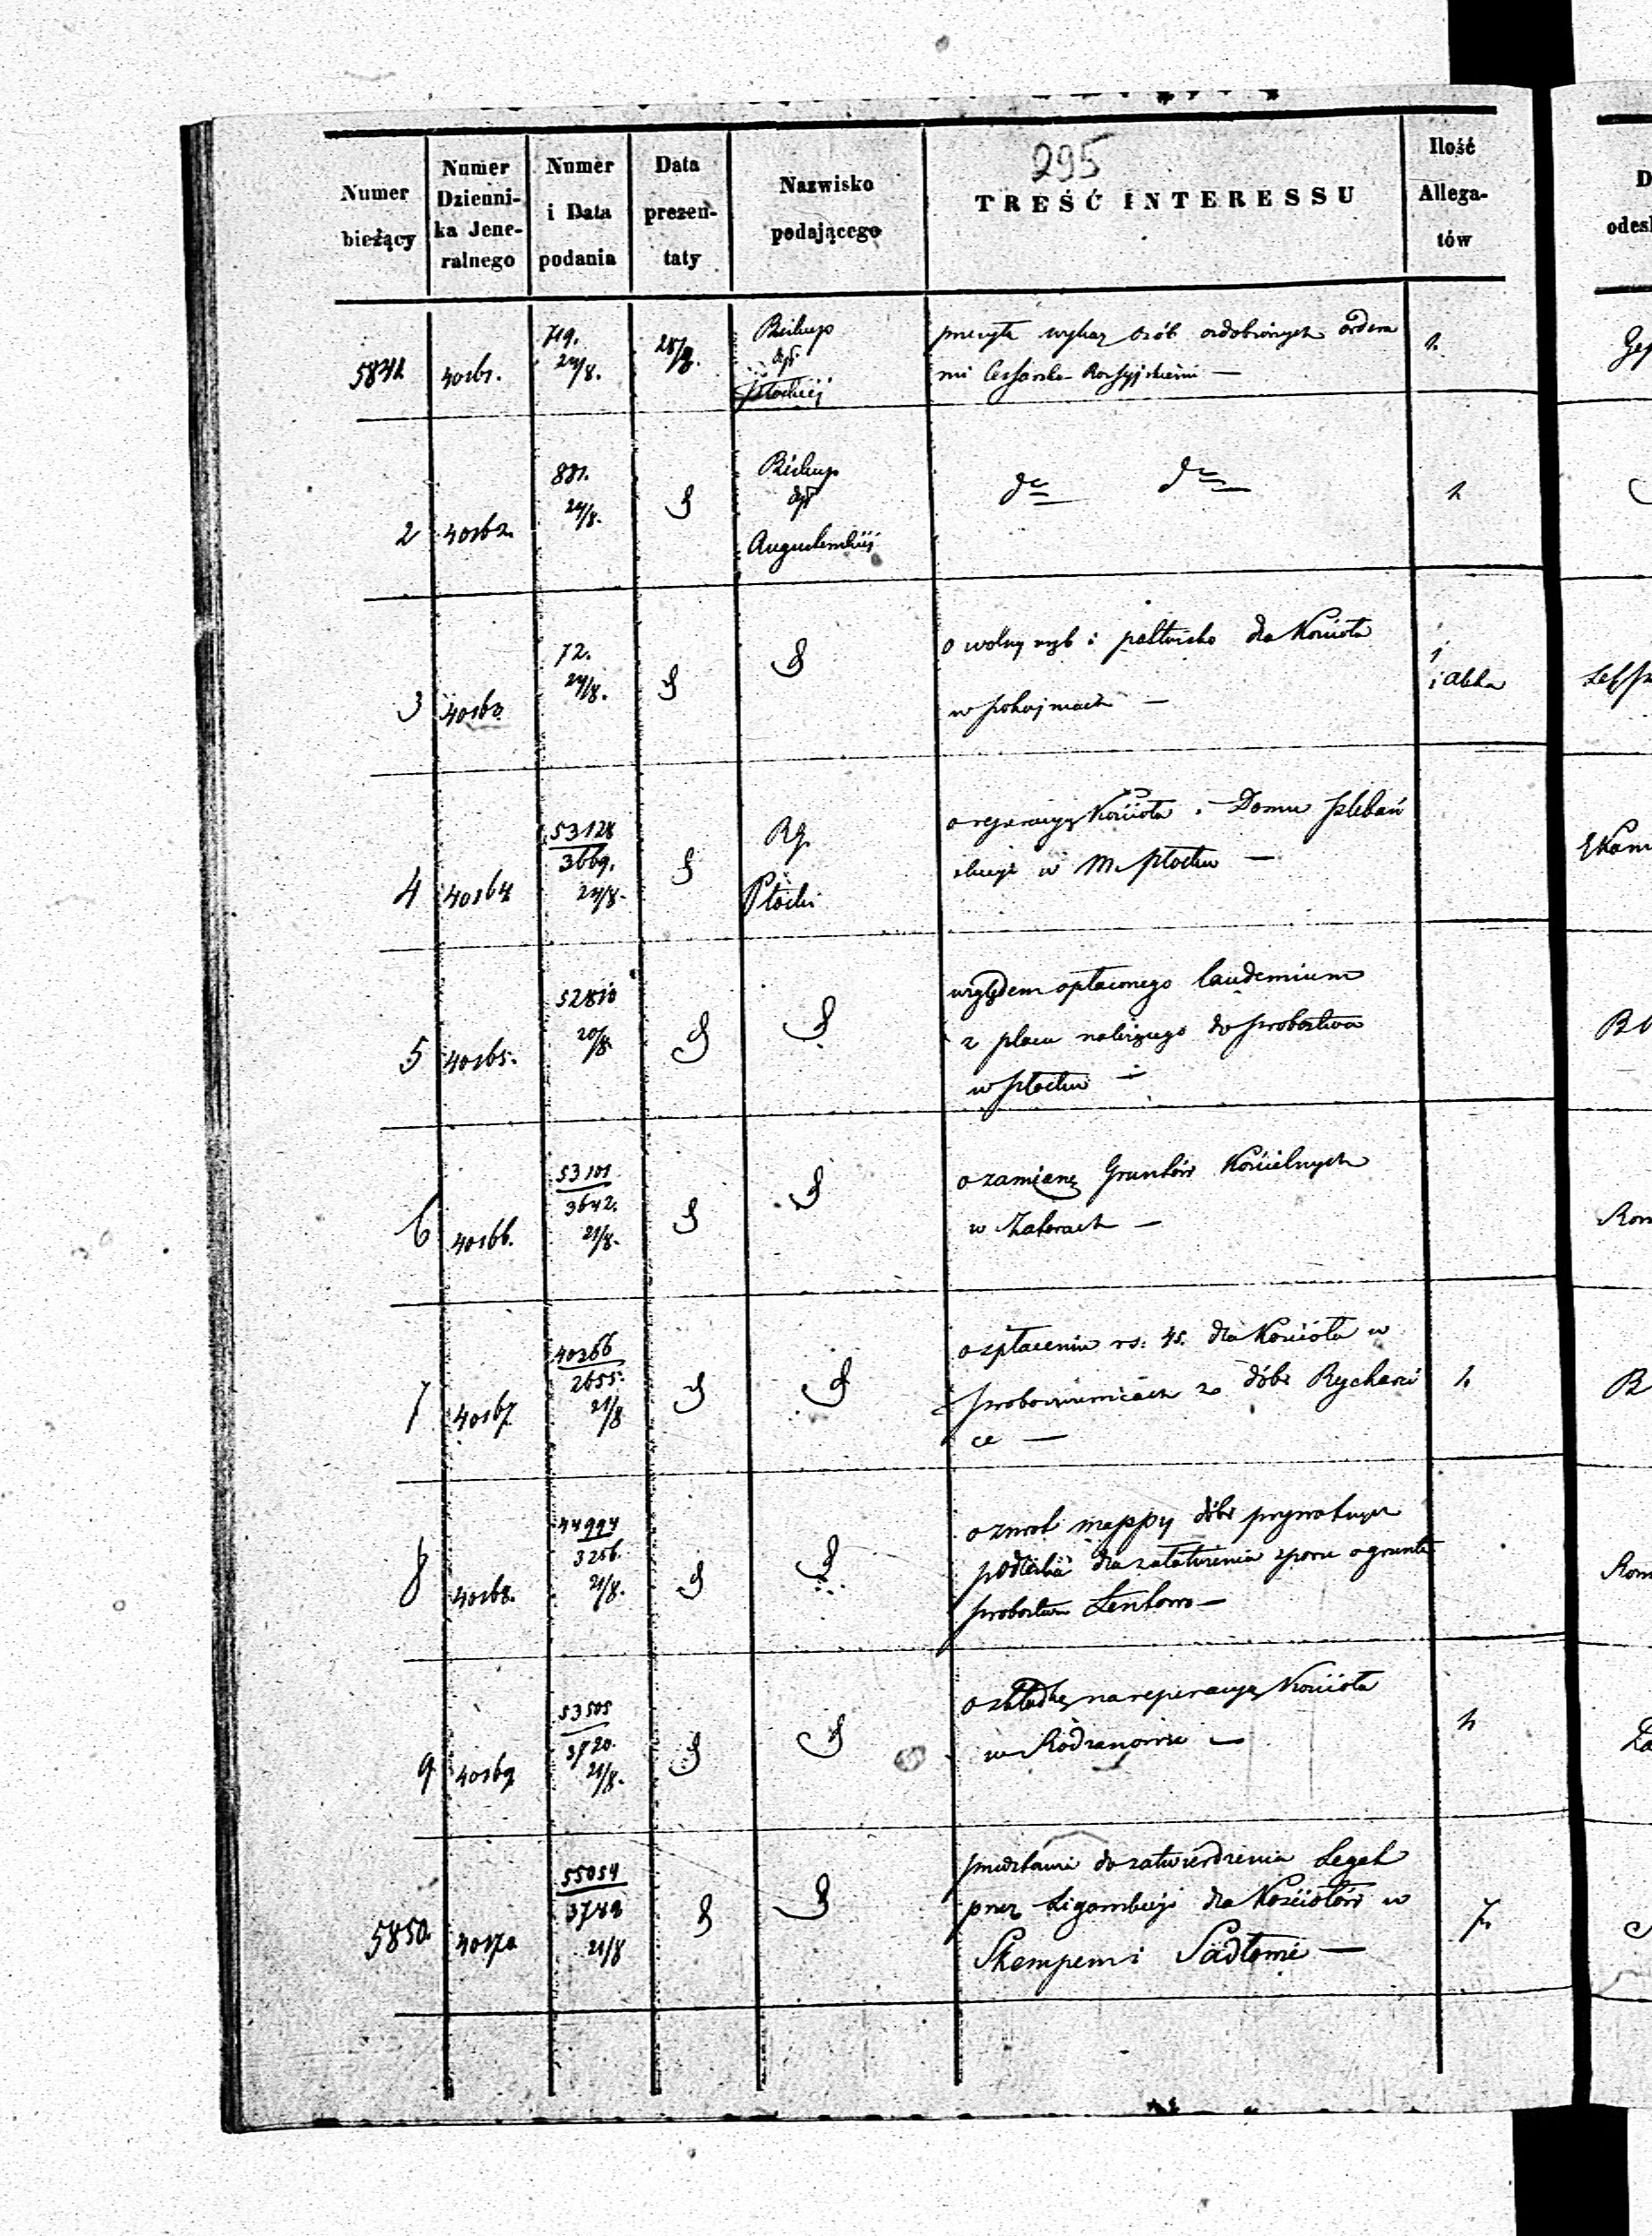 295
Numer bieżący | Numer Dzienni-ka Jene-ralnego | Numer i Data podania | Data prezen-taty | Nazwisko podającego | TREŚĆ INTERESSU | Ilość Allega-tów
5841 40161. 719. 24/8. 28/8. Biskup dyi Płockiéj
przesyła wykaz osób ozdobionych ordera
mi Cessarsko Rossyjskiemi — 1.
2 40162. 881. 24/8. Biskup dyi Augustowskiéj
do do 1
3 40163. 72. 24/8.
o wolny rąb i pastwisko dla Kościoła
w Pokojniach — 1 i akta
4 40164 53128 3669. 24/8. RG. Płocki
o reperacyę Kościoła i Domu plebań
skiego w M. Płocku —
5 40165. 52810 20/8.
względem opłaconego laudemium
z placu należącego do probostwa
w Płocku —
6 40166. 53101 3642. 21/8.
o zamianę Gruntów Kościelnych
w Zatorach —
7 40167. 40266 2655. 21/8
o spłacenie rs: 45. dla Kościoła w
z dóbr Rychar
ce — 1.
8 40168. 44994 3256. 21/8.
o zwrot mappy dóbr prywatnych
dla załatwienia sporu o grunta
probostwa Łęntowo —
9 40169 53505 3720. 21/8.
o składkę na reperacyę Kościoła
w Radzanowie — 1
5850. 40170 55054 3749 21/8
przedstawia do zatwierdzenia Legat
przez dla Kościołów w
Skempem i Sadłowie — 7.